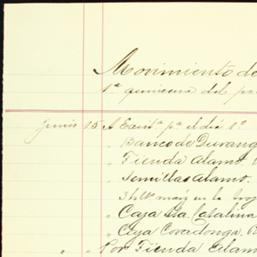 Movimiento de
1ª quincena del p
Junio 15 A Exist.ª p.ª el día 1º
" Banco de Durang
" Tienda Alamo
" Semillas Alamo.
3 hlts maíz en la troj
" Caja Sta. Catalina
" Caja Covadonga
" " Por Tienda Alam